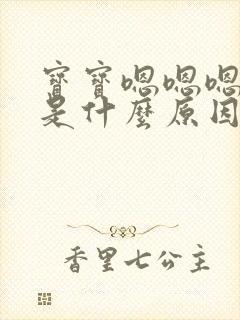 寶寶嗯嗯嗯
是什麼原因
香里七公主